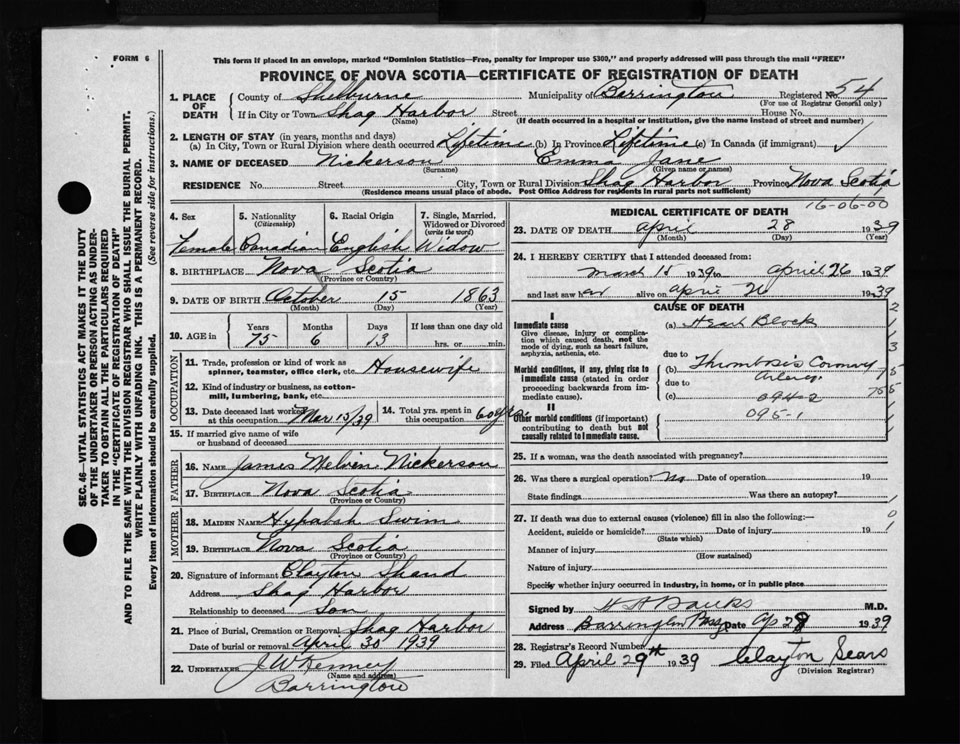 FORM 6
This form if placed in an envelope, marked "Dominion Statistics—Free, penalty for improper use $300," and properly addressed will pass through the mail "FREE"
PROVINCE OF NOVA SCOTIA—CERTIFICATE OF REGISTRATION OF DEATH
1. PLACE OF DEATH County of Shelburne Municipality of Barrington Registered No. 54
(For use of Registrar General only)
If in City or Town Shag Harbor Street House No.
(Name) (If death occurred in a hospital or institution, give the name instead of street and number)
2. LENGTH OF STAY (in years, months and days)
(a) In City, Town or Rural Division where death occurred Lifetime (b) In Province Lifetime (c) In Canada (if immigrant)
3. NAME OF DECEASED Nickerson Emma Jane
(Surname) (Given name or names)
RESIDENCE No. Street City, Town or Rural Division Shag Harbor Province Nova Scotia
(Residence means usual place of abode. Post Office Address for residents in rural parts not sufficient)
4. Sex 5. Nationality (Citizenship) 6. Racial Origin 7. Single, Married, Widowed or Divorced (write the word)
Female Canadian English Widow
8. BIRTHPLACE Nova Scotia
(Province or Country)
9. DATE OF BIRTH October 15 1863
(Month) (Day) (Year)
10. AGE in Years Months Days If less than one day old
75 6 13 hrs. or min.
OCCUPATION
11. Trade, profession or kind of work as spinner, teamster, office clerk, etc. Housewife
12. Kind of industry or business, as cotton-mill, lumbering, bank, etc.
13. Date deceased last worked at this occupation Mar 15/39 14. Total yrs. spent in this occupation 60 yrs.
15. If married give name of wife or husband of deceased
FATHER
16. NAME James Melvin Nickerson
17. BIRTHPLACE Nova Scotia
(Province or Country)
MOTHER
18. MAIDEN NAME Swim
19. BIRTHPLACE Nova Scotia
(Province or Country)
20. Signature of informant Clayton Shand
Address Shag Harbor
Relationship to deceased Son
21. Place of Burial, Cremation or Removal Shag Harbor
Date of burial or removal April 30 1939
22. UNDERTAKER J W Kenney
(Name and address)
Barrington
16-06-00
MEDICAL CERTIFICATE OF DEATH
23. DATE OF DEATH April 28 1939
(Month) (Day) (Year)
24. I HEREBY CERTIFY that I attended deceased from:
March 15 1939 to April 26 1939
and last saw her alive on April 26 1939
CAUSE OF DEATH
I
Immediate cause
Give disease, injury or complication which caused death, not the mode of dying, such as heart failure, asphyxia, asthenia, etc.
(a) Heart Block
due to
Morbid conditions, if any, giving rise to immediate cause (stated in order proceeding backwards from immediate cause).
(b) Thrombosis Coronary Artery
due to
(c) 094-2
II
Other morbid conditions (if important) contributing to death but not causally related to immediate cause.
095-1
25. If a woman, was the death associated with pregnancy?
26. Was there a surgical operation? No Date of operation 19
State findings Was there an autopsy?
27. If death was due to external causes (violence) fill in also the following:—
Accident, suicide or homicide? Date of injury 19
(State which)
Manner of injury
(How sustained)
Nature of injury
Specify whether injury occurred in industry, in home, or in public place
Signed by H A Banks M.D.
Address Barrington Pass. Date Ap 28 1939
28. Registrar's Record Number
29. Filed April 29th 1939 Clayton Sears
(Division Registrar)
SEC. 46—VITAL STATISTICS ACT MAKES IT THE DUTY
OF THE UNDERTAKER OR PERSON ACTING AS UNDER-
TAKER TO OBTAIN ALL THE PARTICULARS REQUIRED
IN THE "CERTIFICATE OF REGISTRATION OF DEATH"
AND TO FILE THE SAME WITH THE DIVISION REGISTRAR WHO SHALL ISSUE THE BURIAL PERMIT.
WRITE PLAINLY WITH UNFADING INK. THIS IS A PERMANENT RECORD.
Every item of information should be carefully supplied. (See reverse side for instructions.)